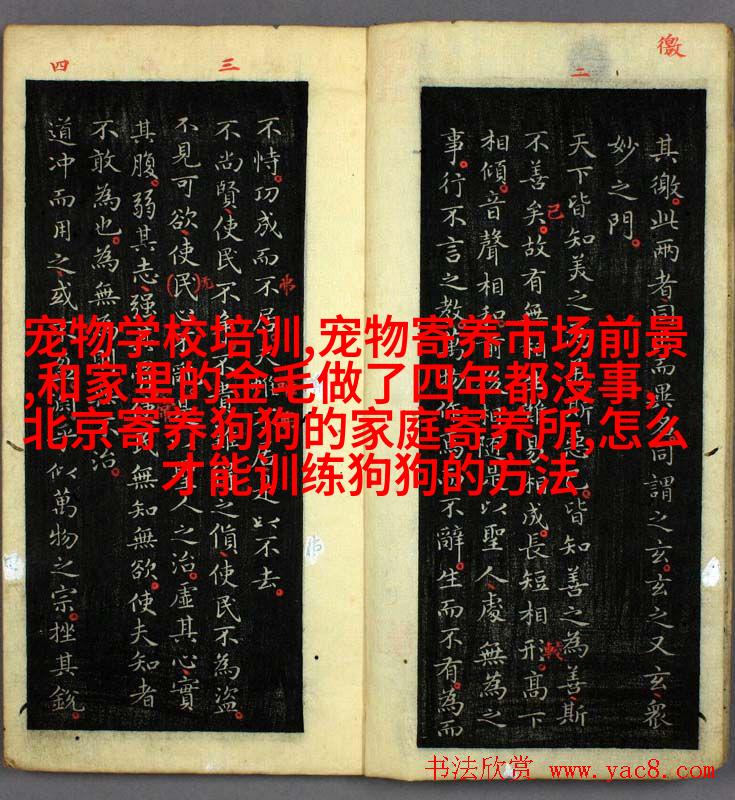 徼
二
三
四
宠物学校培训,宠物寄养市场前景
,和家里的金毛做了四年都没事,
北京寄养狗狗的家庭寄养所,怎么
才能训练狗狗的方法
其徼。此两者同而異名同謂之玄。玄之又玄、衆
妙之門。
天下皆知美之斯惡已。皆知善之為善斯
不善矣。故有無相相成。長短相形。高下
相傾。音聲相和相隨。是以聖人處無為之
事。行不言之教不辭。生而不有。為而
不恃。功成而不居。夫以不去。
不尚賢、使民不之貨、使民不為盜。
不見可欲、使民心人之治。虛其心、實
其腹。弱其志、強民無知無欲。使夫知者
不敢為也。為無治。
道冲而用之、或似萬物之宗。挫其銳。
已
无
书法欣赏 www.yac8.com